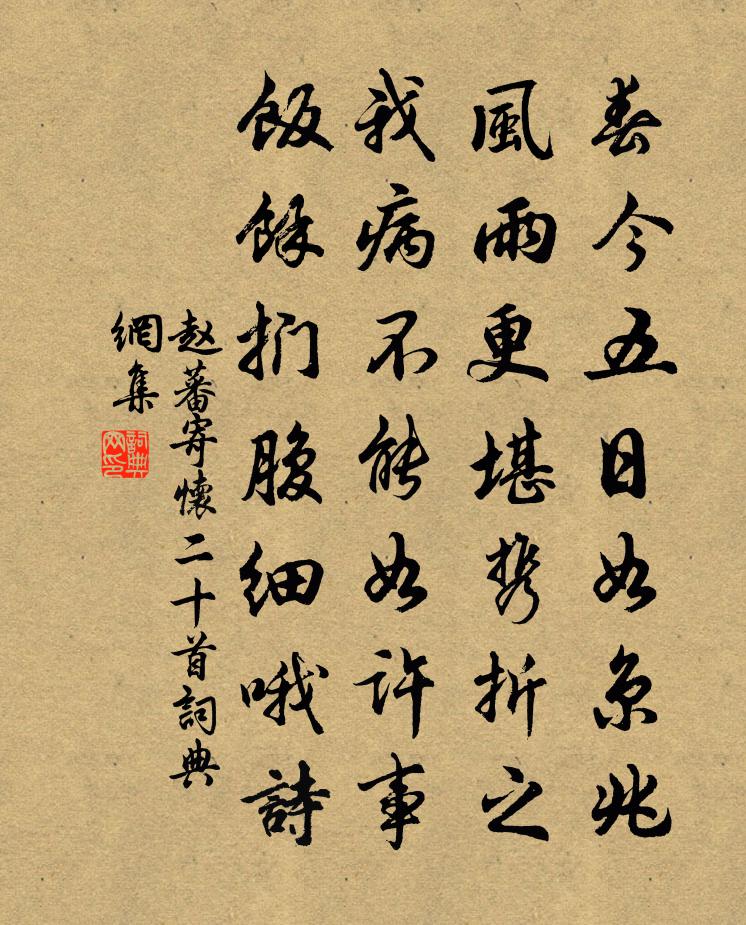 春今五日如京兆
風雨更堪携折之
我病不能如許事
飯餘捫腹細哦詩
赵蕃寄懷二十首詞典
網集
詞典
网印